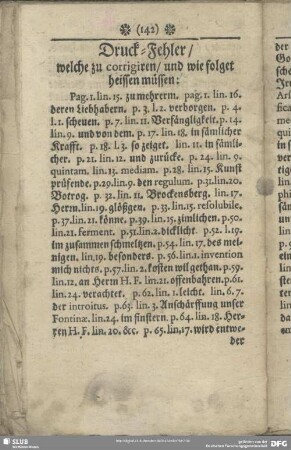 (142)
Druck-Fehler/
welche zu corrigiren/ und wie folget
heissen müssen:
Pag. 1. lin. 15. zu mehrerm. pag. 1. lin. 16.
deren Liebhabern. p. 3. l. 2. verborgen. p. 4.
l. 1. scheuen. p. 7. lin. 11. Verfängligkeit. p. 14.
lin. 9. und von dem. p. 17. lin. 18. in sämlicher
Krafft. p. 18. l. 3. so zeiget. lin. 11. in sämli-
cher. p. 21. lin. 12. und zurücke. p. 24. lin. 9.
quintam. lin. 13. mediam. p. 28. lin. 15. Kunst
prüfende. p. 29. lin. 9. den regulum. p. 31. lin. 20.
Botrog. p. 32. lin. 11. Brockenberg. lin. 17.
Herm. lin. 19. glößgen. p. 33. lin. 15. resolubile.
p. 37. lin. 21. könnt. p. 39. lin. 15. zimlichen. p. 50.
lin. 21. ferment. p. 51. lin. 2. dicklicht. p. 52. l. 19.
im zusammen schmeltzen. p. 54. lin. 17. des mei-
nigen. lin. 19. besonders. p. 56. lin. 1. invention
mich nichts. p. 57. lin. 2. kosten wil gethan. p. 59.
lin. 12. an Herrn H. F. lin. 21. offenbahren. p. 61.
lin. 24. verachtet. p. 62. lin. 1. leicht. lin. 6. 7.
der introitus. p. 63. lin. 3. Anschärffung unser
Fontinæ. lin. 24. im finstern. p. 64. lin. 18. Her-
ren H. F. lin. 20. &c. p. 65. lin. 17. wird entwe-
der
SLUB